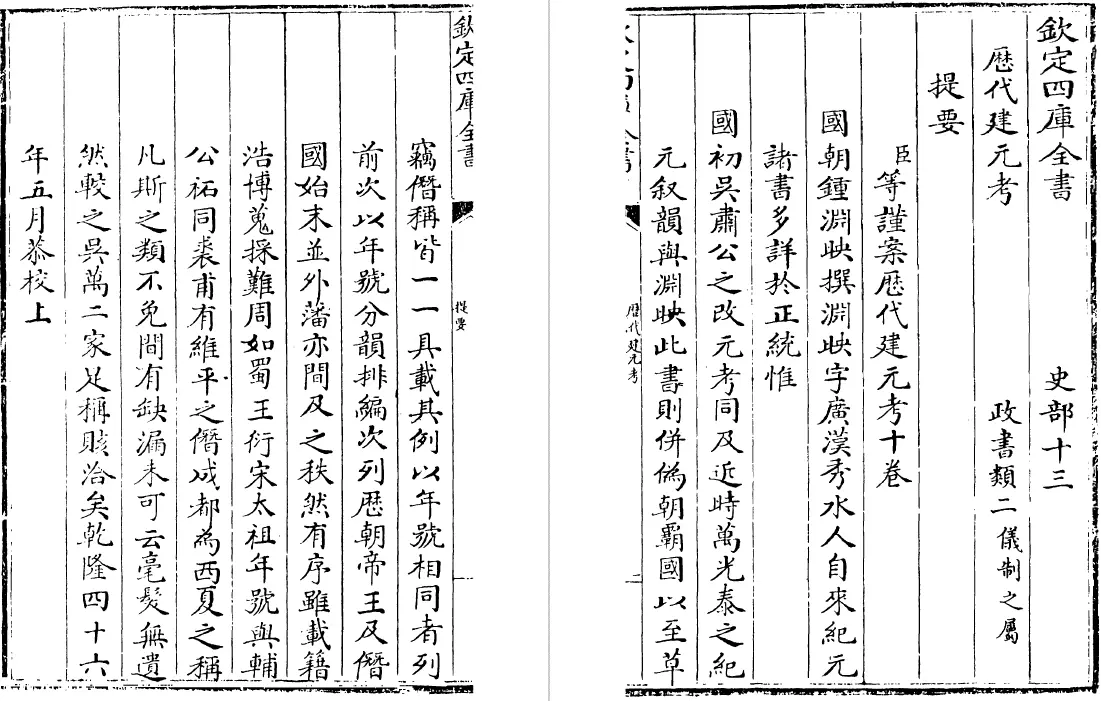 欽定四庫全書　史部十三
歴代建元考　政書類二儀制之屬
提要
臣等謹案歴代建元考十卷
國朝鍾淵映撰淵映字廣漢秀水人自來紀元
諸書多詳於正統惟
國初吳肅公之改元考同及近時萬光泰之紀
元叙韻與淵映此書則併偽朝霸國以至草
歴代建元考
二
欽定四庫全書
提要
竊僭稱皆一一具載其例以年號相同者列
前次以年號分韻排編次列歴朝帝王及僭
國始末並外藩亦間及之秩然有序雖載籍
浩博蒐採難周如蜀王衍宋太祖年號與輔
公祏同裘甫有維平之僭成都為西夏之稱
凡斯之類不免間有缺漏未可云毫髮無遺
然較之吳萬二家足稱賅洽矣乾隆四十六
年五月恭校上